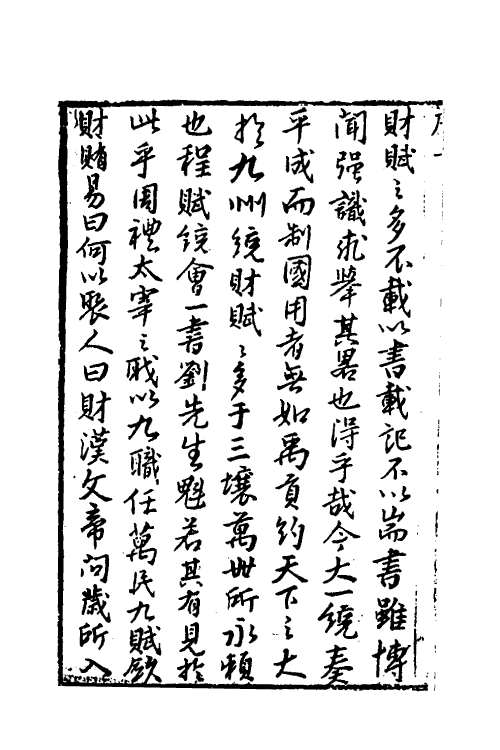 財賦之多不載以書載記不以耑書雖博
聞强識求舉其畧也得乎哉今大一統奏
平成而制國用者無如禹貢約天下之大
於九州統財賦之多于三壤萬世所永頼
也程賦統會一書劉先生魁若其有見於
此乎周禮太宰之職以九職任萬民九賦歛
財賄易曰何以聚人曰財漢文帝问歲所入